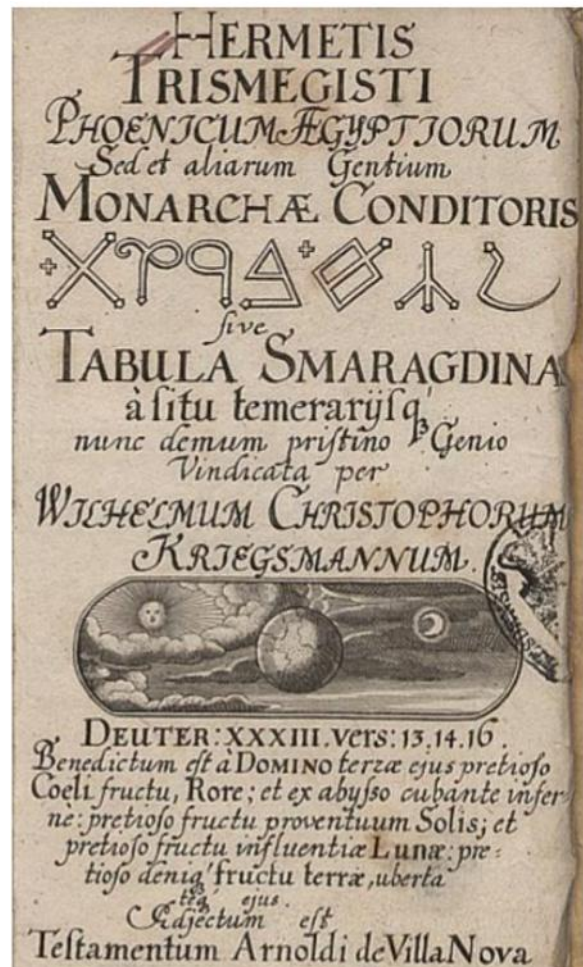 HERMETIS
TRISMEGISTI
PHOENICUM ÆGYPTIORUM
Sed et aliarum Gentium
MONARCHÆ CONDITORIS
sive
TABULA SMARAGDINA
à situ temerarijsq́
nunc demum pristino Genio
Vindicata per
WILHELMUM CHRISTOPHORUM
KRIEGSMANNUM.
DEUTER: XXXIII. vers: 13. 14. 16.
Benedictum est à DOMINO terræ ejus pretioso
Coeli fructu, Rore; et ex abysso cubante infer-
nè: pretioso fructu proventuum Solis; et
pretioso fructu influentiæ Lunæ: pre-
tioso deniq́ fructu terræ, uberta
teq́ ejus.
Adjectum est
Testamentum Arnoldi de Villa Nova